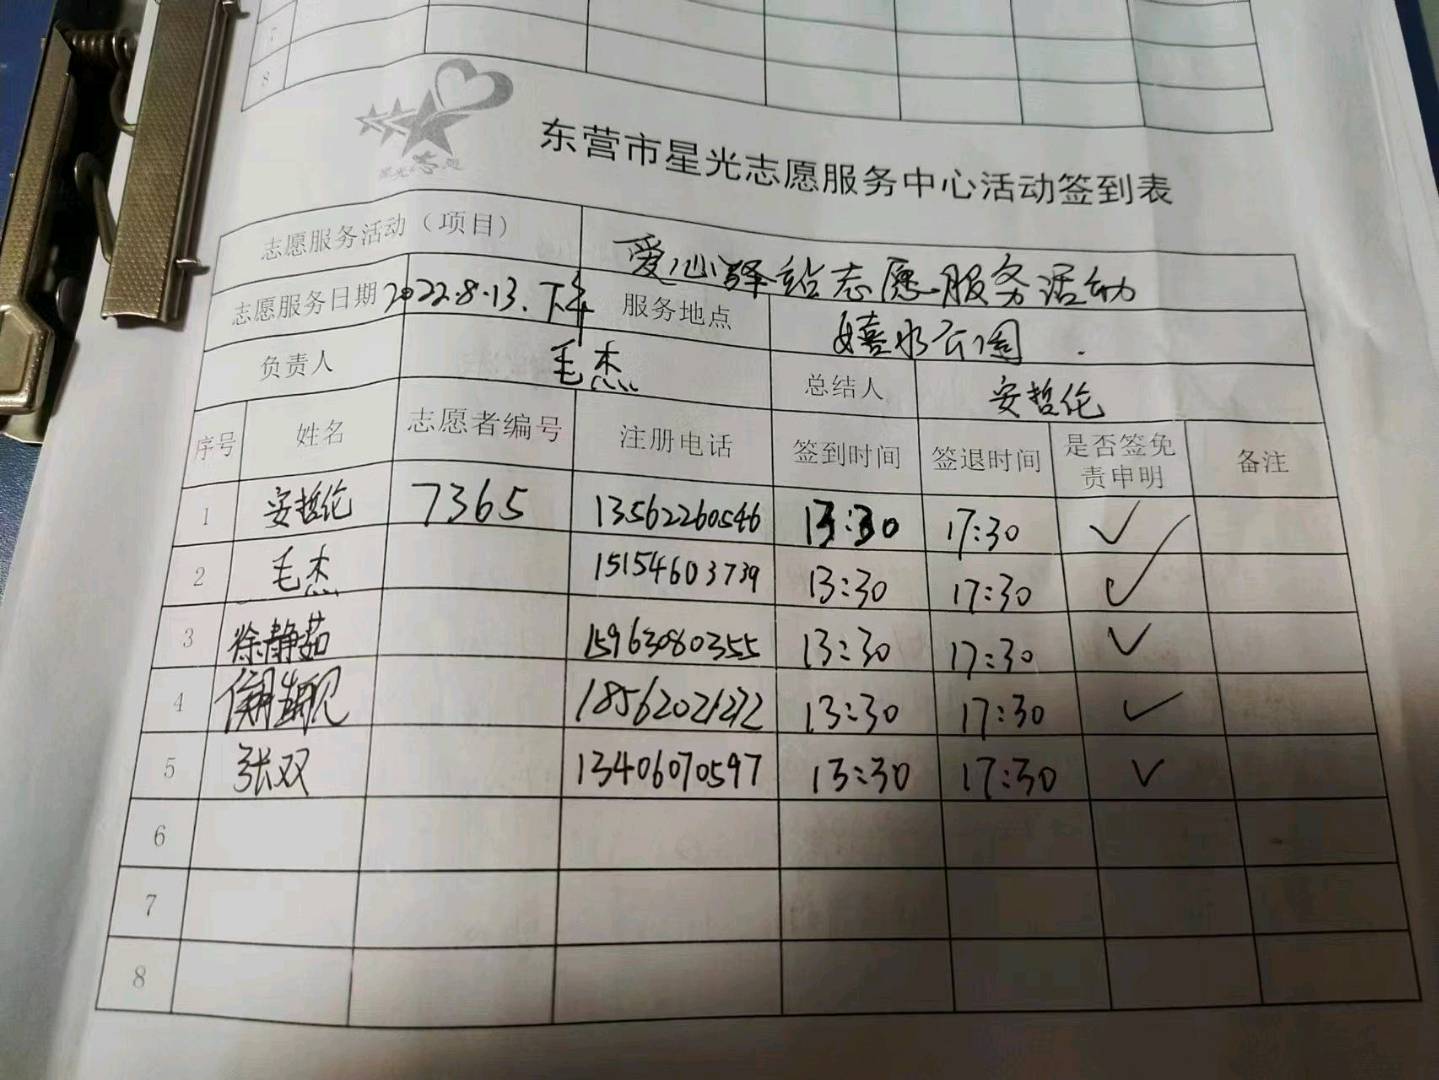 7
8
星光志愿
东营市星光志愿服务中心活动签到表
志愿服务活动（项目） 爱心驿站志愿服务活动
志愿服务日期 2022.8.13.下午 服务地点 嬉水公园
负责人 毛杰 总结人 安哲伦
序号 姓名 志愿者编号 注册电话 签到时间 签退时间 是否签免责申明 备注
1 安哲伦 7365 13562260546 13:30 17:30 ✓
2 毛杰 15154603739 13:30 17:30 ✓
3 徐静茹 15963080355 13:30 17:30 ✓
4 13:30 17:30 ✓
5 张双 13406070597 13:30 17:30 ✓
6
7
8